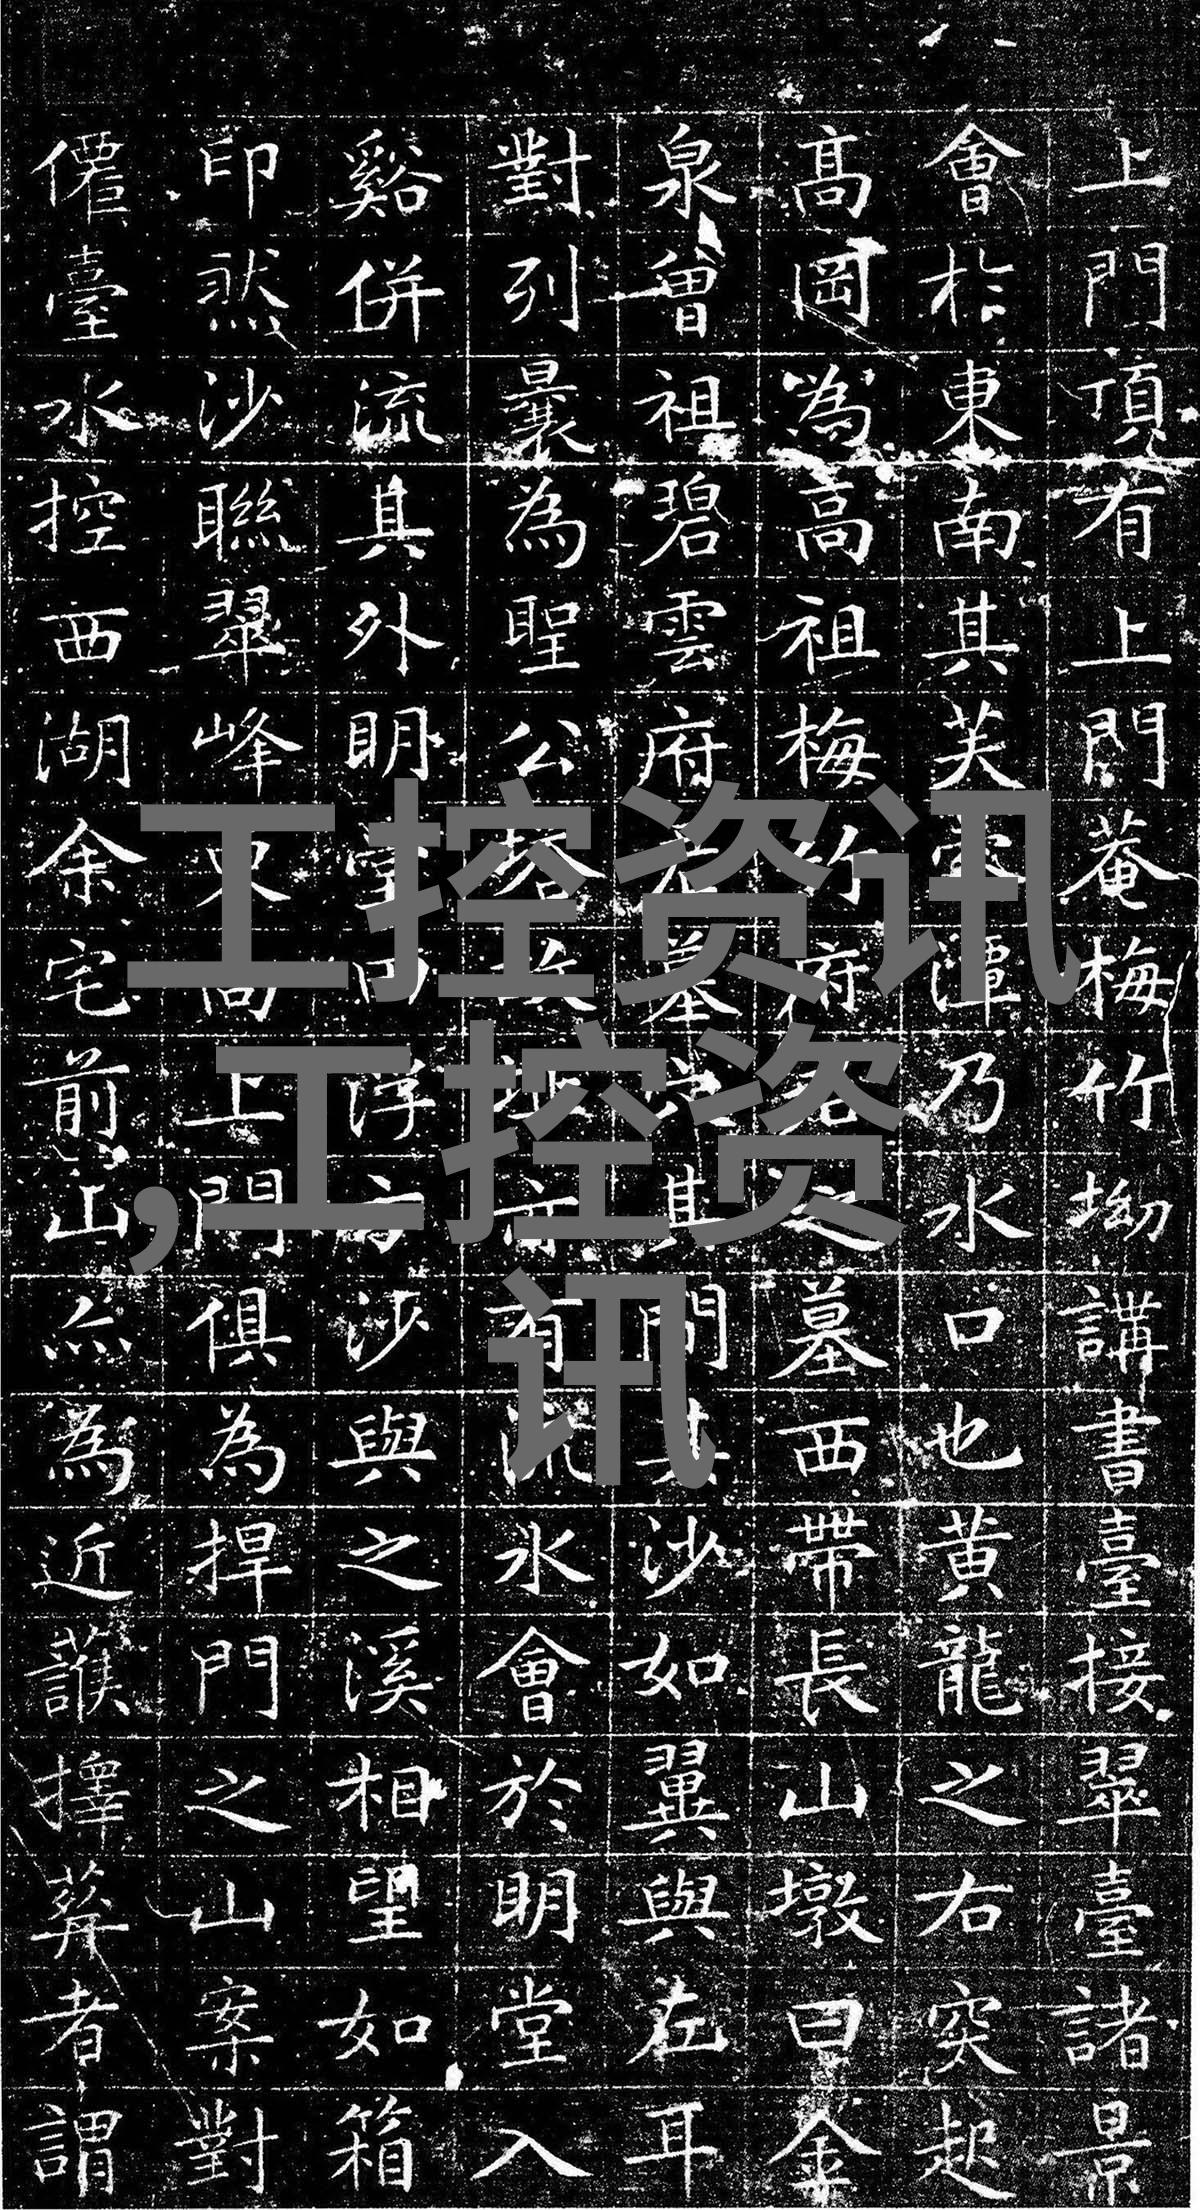 上門頂有上門菴梅竹坳講書臺接翠臺諸景
會扵東南其芙潭乃水口也黃龍之右突起
高岡為高祖梅竹府君之墓西帶長山墩曰金
泉曾祖碧雲府君墓其間其沙如翼與左耳
對列曩為聖公塔故址亦有流水會於明堂入
谿併流其外明堂内浮方沙與之溪相望如箱
印然沙聯翠峰東向上門俱為捍門之山案對
僊臺水控西湖余宅前山亦為近䕶擇葬者謂
工控资讯
,工控资
讯